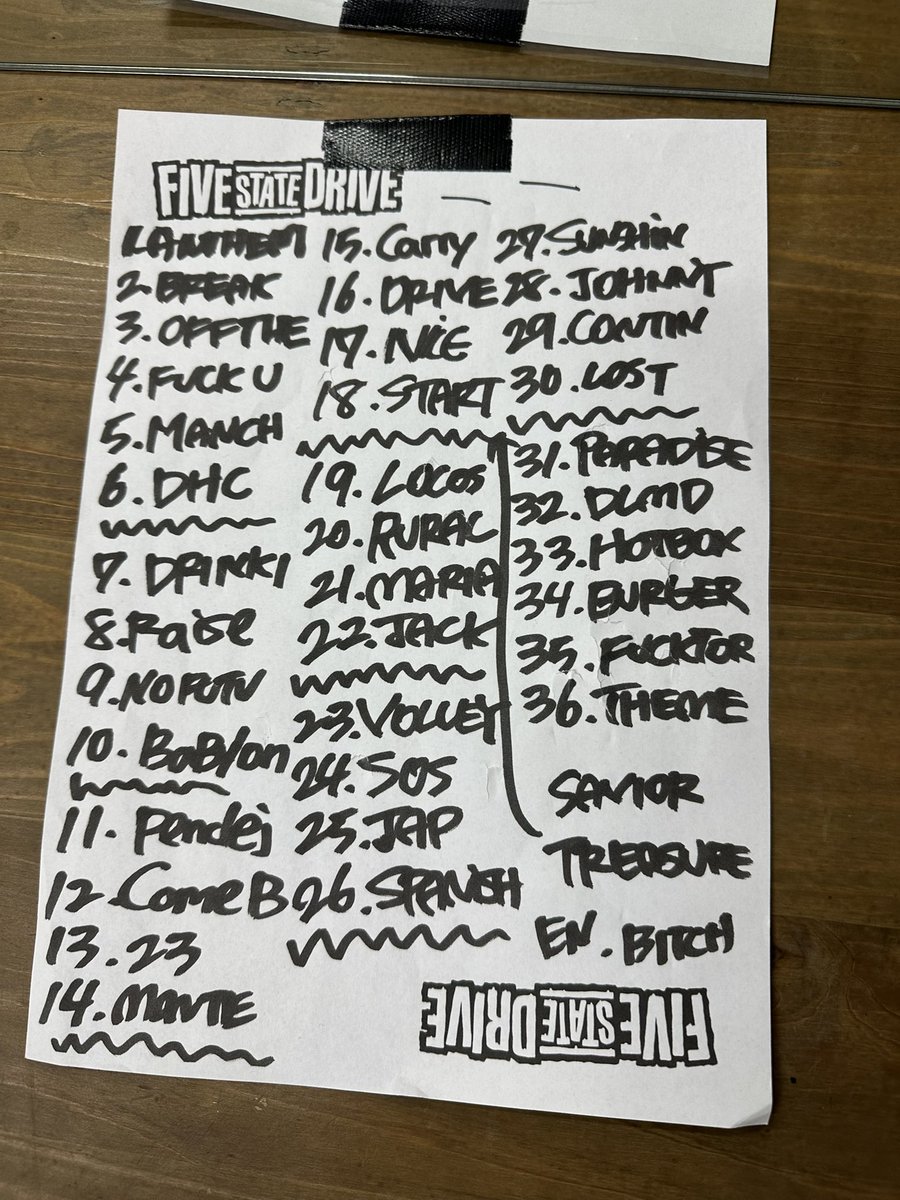 FIVE STATE DRIVE
1. ANTHEM
2. BREAK
3. OFFTHE
4. FUCK U
5. MANCH
6. DHC
7. DRINKI
8. Raise
9. NO FUTU
10. BaBylon
11. Pendej
12. Come B
13. 23
14. MONTE
15. Carry
16. DRIVE
17. NiCE
18. START
19. LOCOS
20. RURAL
21. MARIA
22. JACK
23. VOLLEY
24. SOS
25. JAP
26. SPANISH
27. SUNSHiN
28. JOHNNY
29. CONTIN
30. LOST
31. PARADiSE
32. DLMD
33. HOTBOX
34. BURGER
35. FUCKTOR
36. THEME
SAVIOR
TREASURE
EN. BITCH
FIVE STATE DRIVE